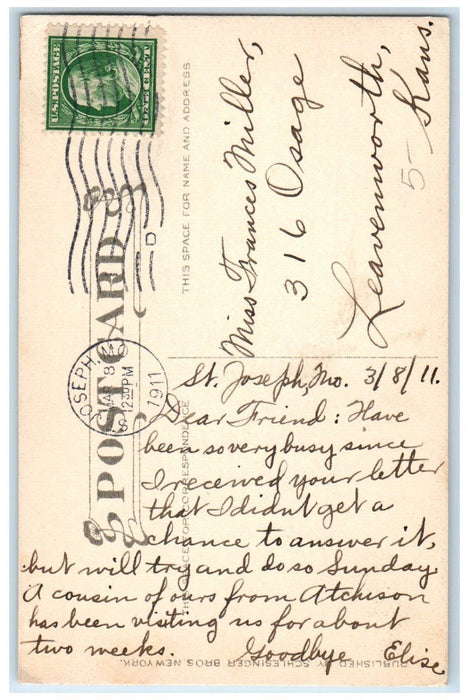 U.S. POSTAGE
ONE CENT
POST CARD
THIS SPACE FOR NAME AND ADDRESS
ST. JOSEPH, MO.
MAR 8
12 30 PM
1911
D
Miss Frances Miller,
316 Osage
Leavenworth,
5- Kans.
St. Joseph, Mo. 3/8/11.
Dear Friend: Have
been so very busy since
I received your letter
that I didnt get a
chance to answer it,
but will try and do so Sunday.
A cousin of ours from Atchison
has been visiting us for about
two weeks. Goodbye Elise
THIS SPACE FOR CORRESPONDENCE
PUBLISHED BY SCHLESINGER BROS. NEW YORK.